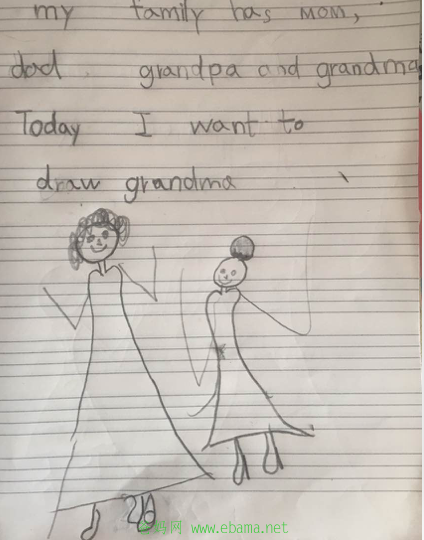 my family has mom,
dad grandpa and grandma
Today I want to
draw grandma
www.ebama.net